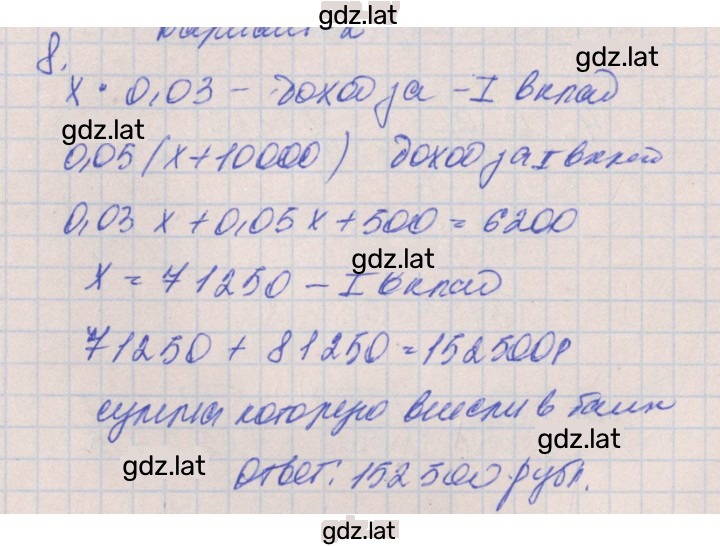 gdz.latt
Вариант 2
gdz.lat
8.
x · 0,03 – доход за – I вклад
gdz.lat
0,05 (x + 10000) доход за I вклад
0,03 x + 0,05 x + 500 = 6200
gdz.lat
x = 71250 – I вклад
71250 + 81250 = 152500р
сумма которую внесли в банк
gdz.lat
gdz.lat
Ответ: 152 500 рубл.
gdz.lat